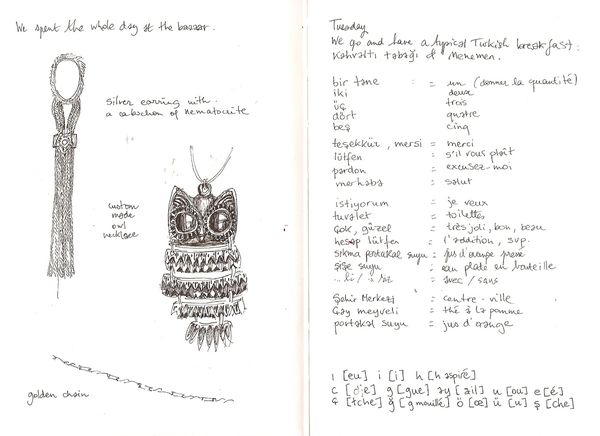 We spent the whole day at the bazaar.
silver earring with
a cabochon of nematocrite
custom
made
owl
necklace
golden chain
Tuesday
We go and have a typical Turkish breakfast:
Kahvaltı tabağı & Menemen.
bir tane = un (donner la quantité)
iki = deux
üç = trois
dört = quatre
beş = cinq
teşekkür, mersi = merci
lütfen = s'il vous plaît
pardon = excusez-moi
merhaba = salut
istiyorum = je veux
tuvalet = toilettes
çok, güzel = très joli, bon, beau
hesap lütfen = l'addition, svp.
sıkma portakal suyu = jus d'orange pressé
şişe suyu = eau plate en bouteille
...li/...siz = avec/sans
Şehir Merkezi = centre-ville
Çay meyveli = thé à la pomme
portakal suyu = jus d'orange
ı [eu] i [i] h [h aspiré]
c [dje] g [gue] ay [ail] u [ou] e [é]
ç [tche] ğ [g mouillé] ö [œ] ü [u] ş [che]